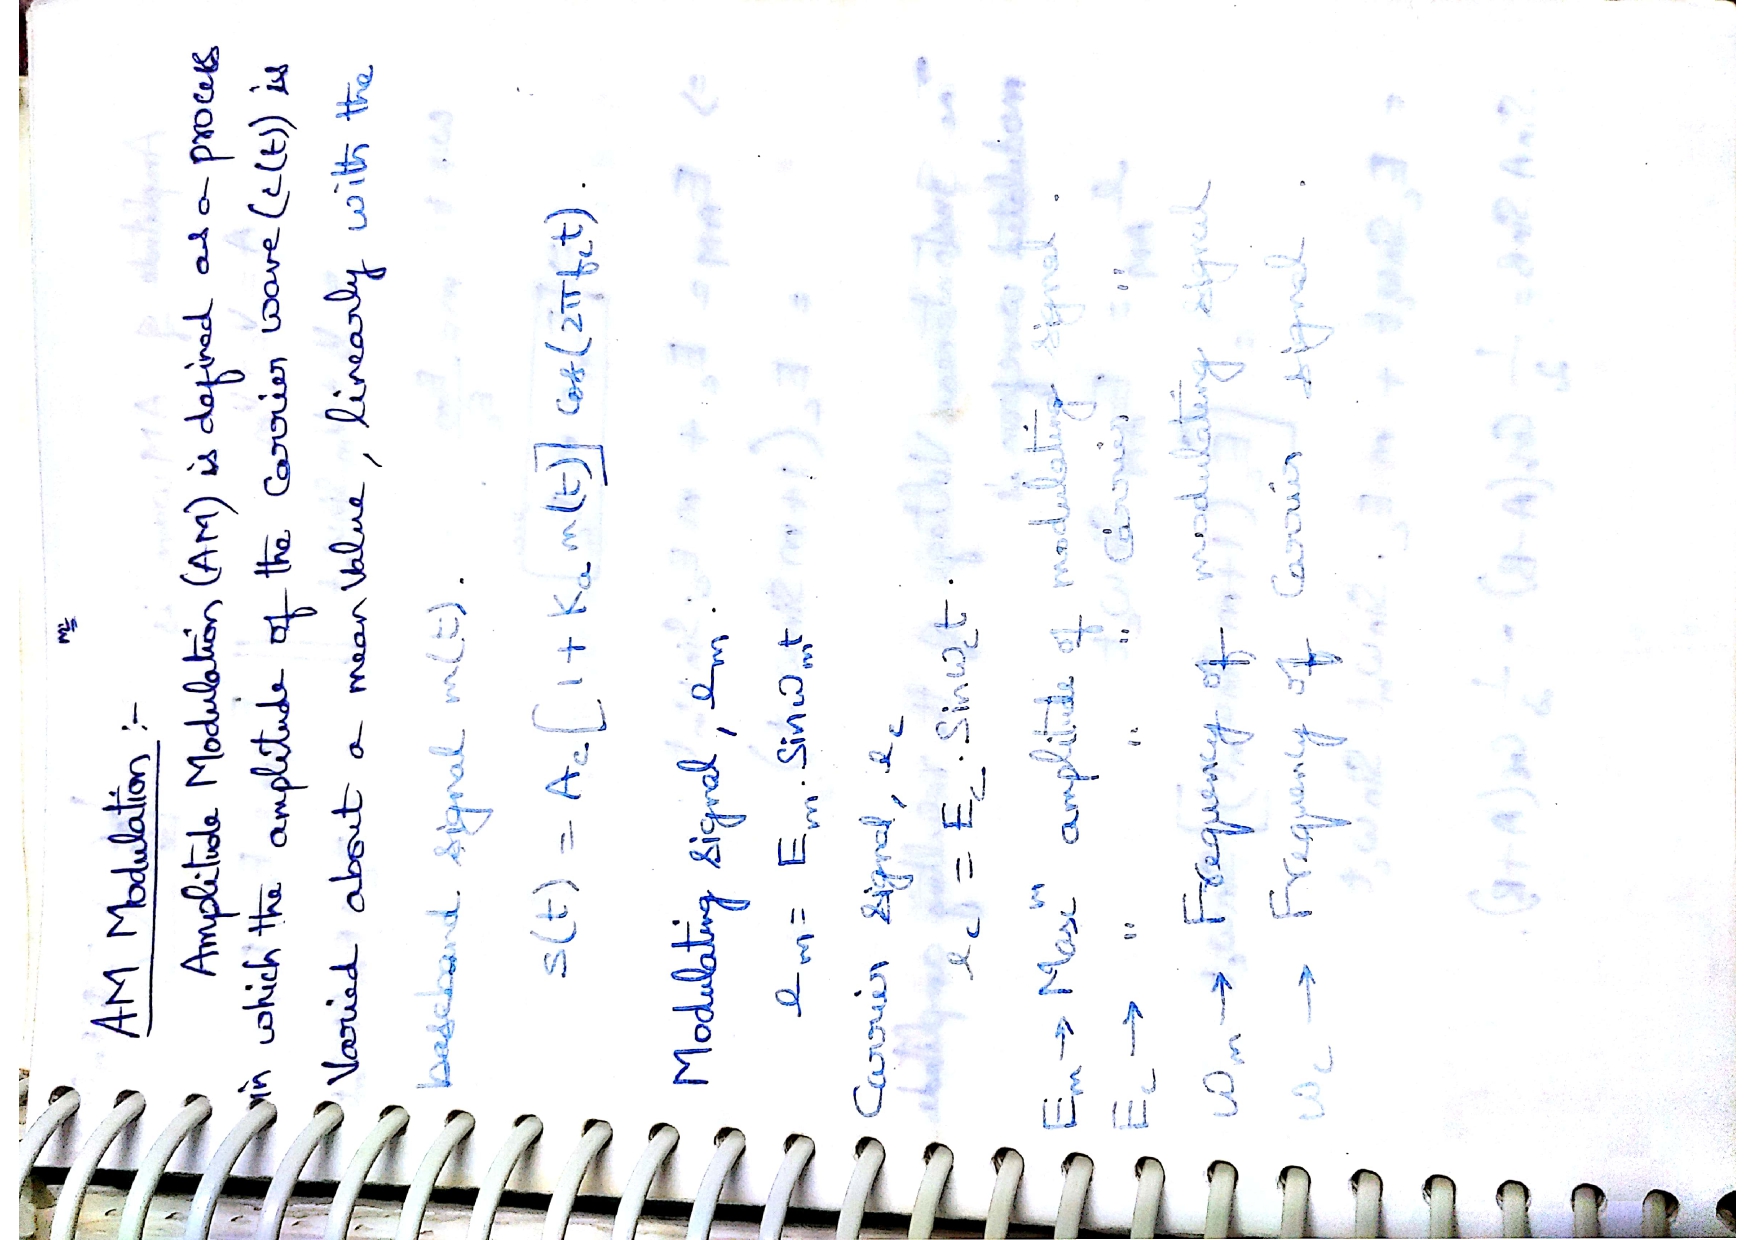 AM Modulation :-
Amplitude Modulation (AM) is defined as a process
in which the amplitude of the Carrier wave (c(t)) is
Varied about a mean Value, linearly with the
baseband signal m(t).
S(t) = Ac [1 + Ka m(t)] cos(2πfct).
Modulating signal, em.
em = Em. Sinωmt
Carrier signal, ec
ec = Ec. Sinωct.
Em → Maxm amplitude of modulating signal.
Ec → " " " Carrier "
ωm → Frequency of modulating signal
ωc → Frequency of Carrier signal.